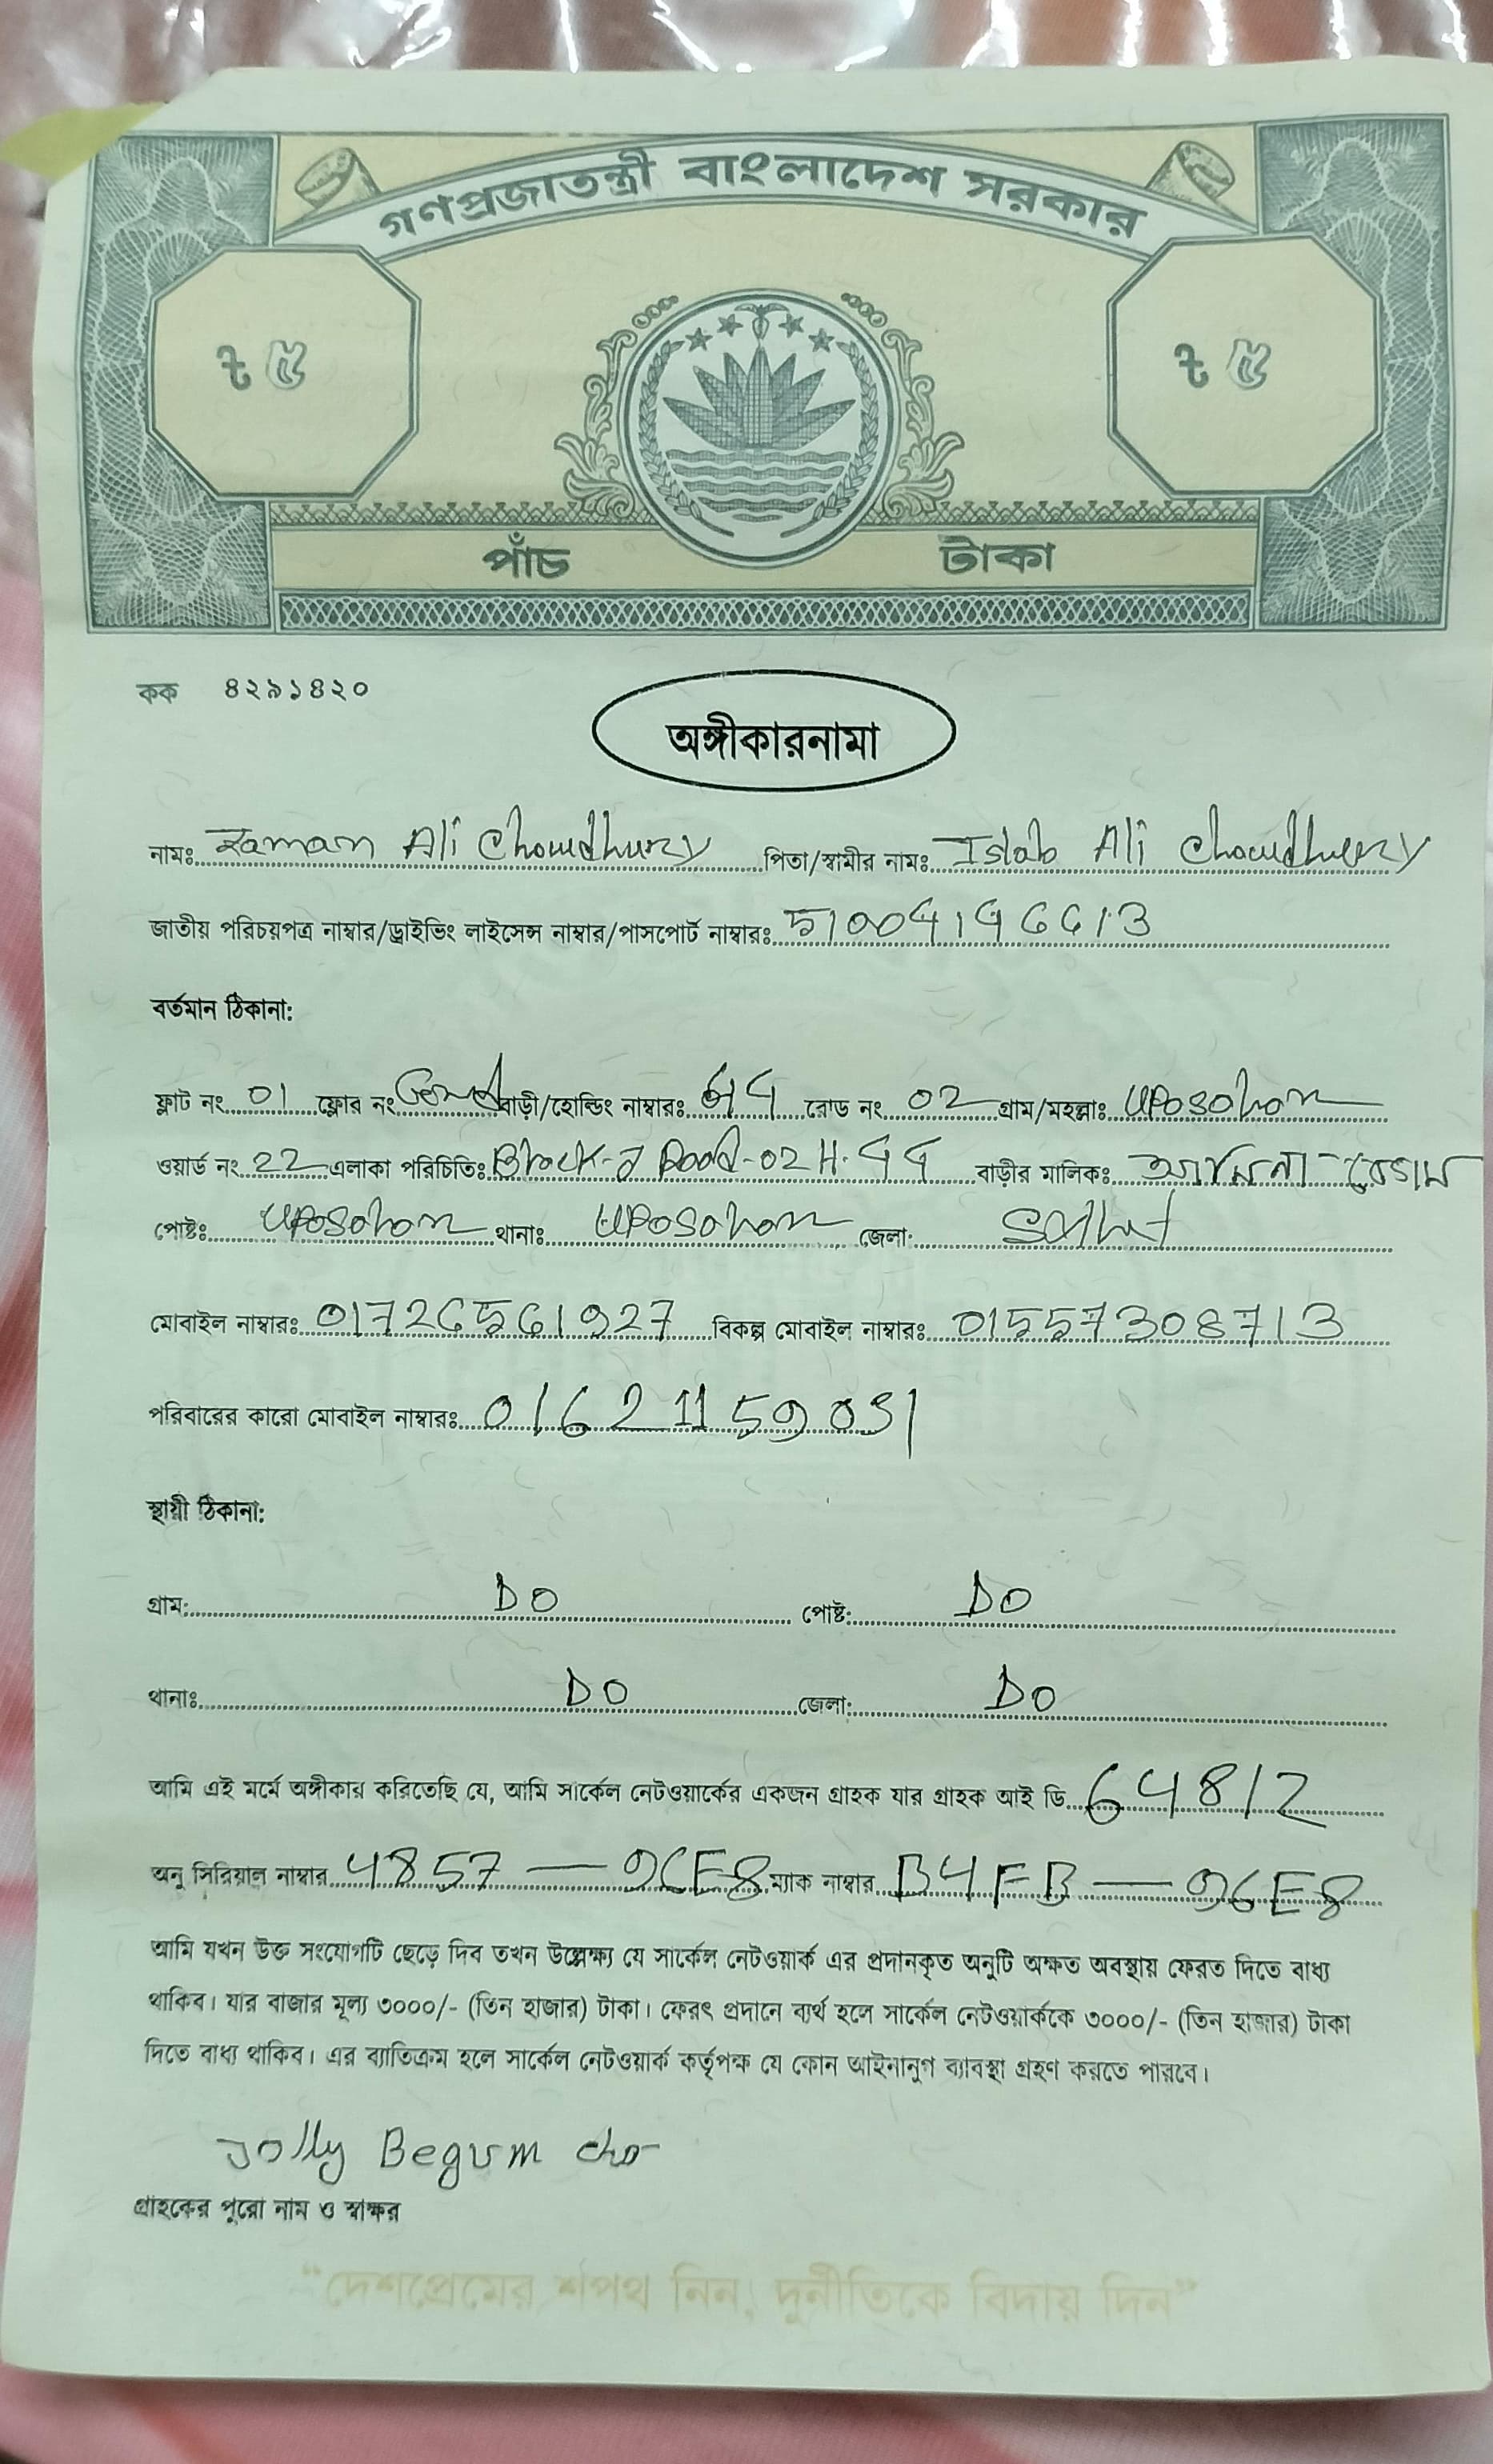 গণপ্রজাতন্ত্রী বাংলাদেশ সরকার
৳ ৫ ৳ ৫
পাঁচ টাকা
কক ৪২৯১৪২০
অঙ্গীকারনামা
নামঃ Zaman Ali Chowdhury পিতা/স্বামীর নামঃ Ali Chowdhury
জাতীয় পরিচয়পত্র নাম্বার/ড্রাইভিং লাইসেন্স নাম্বার/পাসপোর্ট নাম্বারঃ
বর্তমান ঠিকানা:
ফ্লাট নং 01 ফ্লোর নং বাড়ী/হোল্ডিং নাম্বারঃ রোড নং 02 গ্রাম/মহল্লাঃ Uposohom
ওয়ার্ড নং 22 এলাকা পরিচিতিঃ Block- Road-02 H. বাড়ীর মালিকঃ আমিনা বেগম
পোষ্টঃ Uposohom থানাঃ Uposohom জেলা:
মোবাইল নাম্বারঃ 01726561927 বিকল্প মোবাইল নাম্বারঃ 01557308713
পরিবারের কারো মোবাইল নাম্বারঃ
স্থায়ী ঠিকানা:
গ্রাম: DO পোষ্ট: DO
থানাঃ DO জেলা: DO
আমি এই মর্মে অঙ্গীকার করিতেছি যে, আমি সার্কেল নেটওয়ার্কের একজন গ্রাহক যার গ্রাহক আই ডি 64812
অনু সিরিয়াল নাম্বার 4857 — 96E8 ম্যাক নাম্বার B4FB — 96E8
আমি যখন উক্ত সংযোগটি ছেড়ে দিব তখন উল্লেক্ষ্য যে সার্কেল নেটওয়ার্ক এর প্রদানকৃত অনুটি অক্ষত অবস্থায় ফেরত দিতে বাধ্য
থাকিব। যার বাজার মূল্য ৩০০০/- (তিন হাজার) টাকা। ফেরৎ প্রদানে ব্যর্থ হলে সার্কেল নেটওয়ার্ককে ৩০০০/- (তিন হাজার) টাকা
দিতে বাধ্য থাকিব। এর ব্যাতিক্রম হলে সার্কেল নেটওয়ার্ক কর্তৃপক্ষ যে কোন আইনানুগ ব্যাবস্থা গ্রহণ করতে পারবে।
Jolly Begum cho
গ্রাহকের পুরো নাম ও স্বাক্ষর
"দেশপ্রেমের শপথ নিন, দুর্নীতিকে বিদায় দিন"